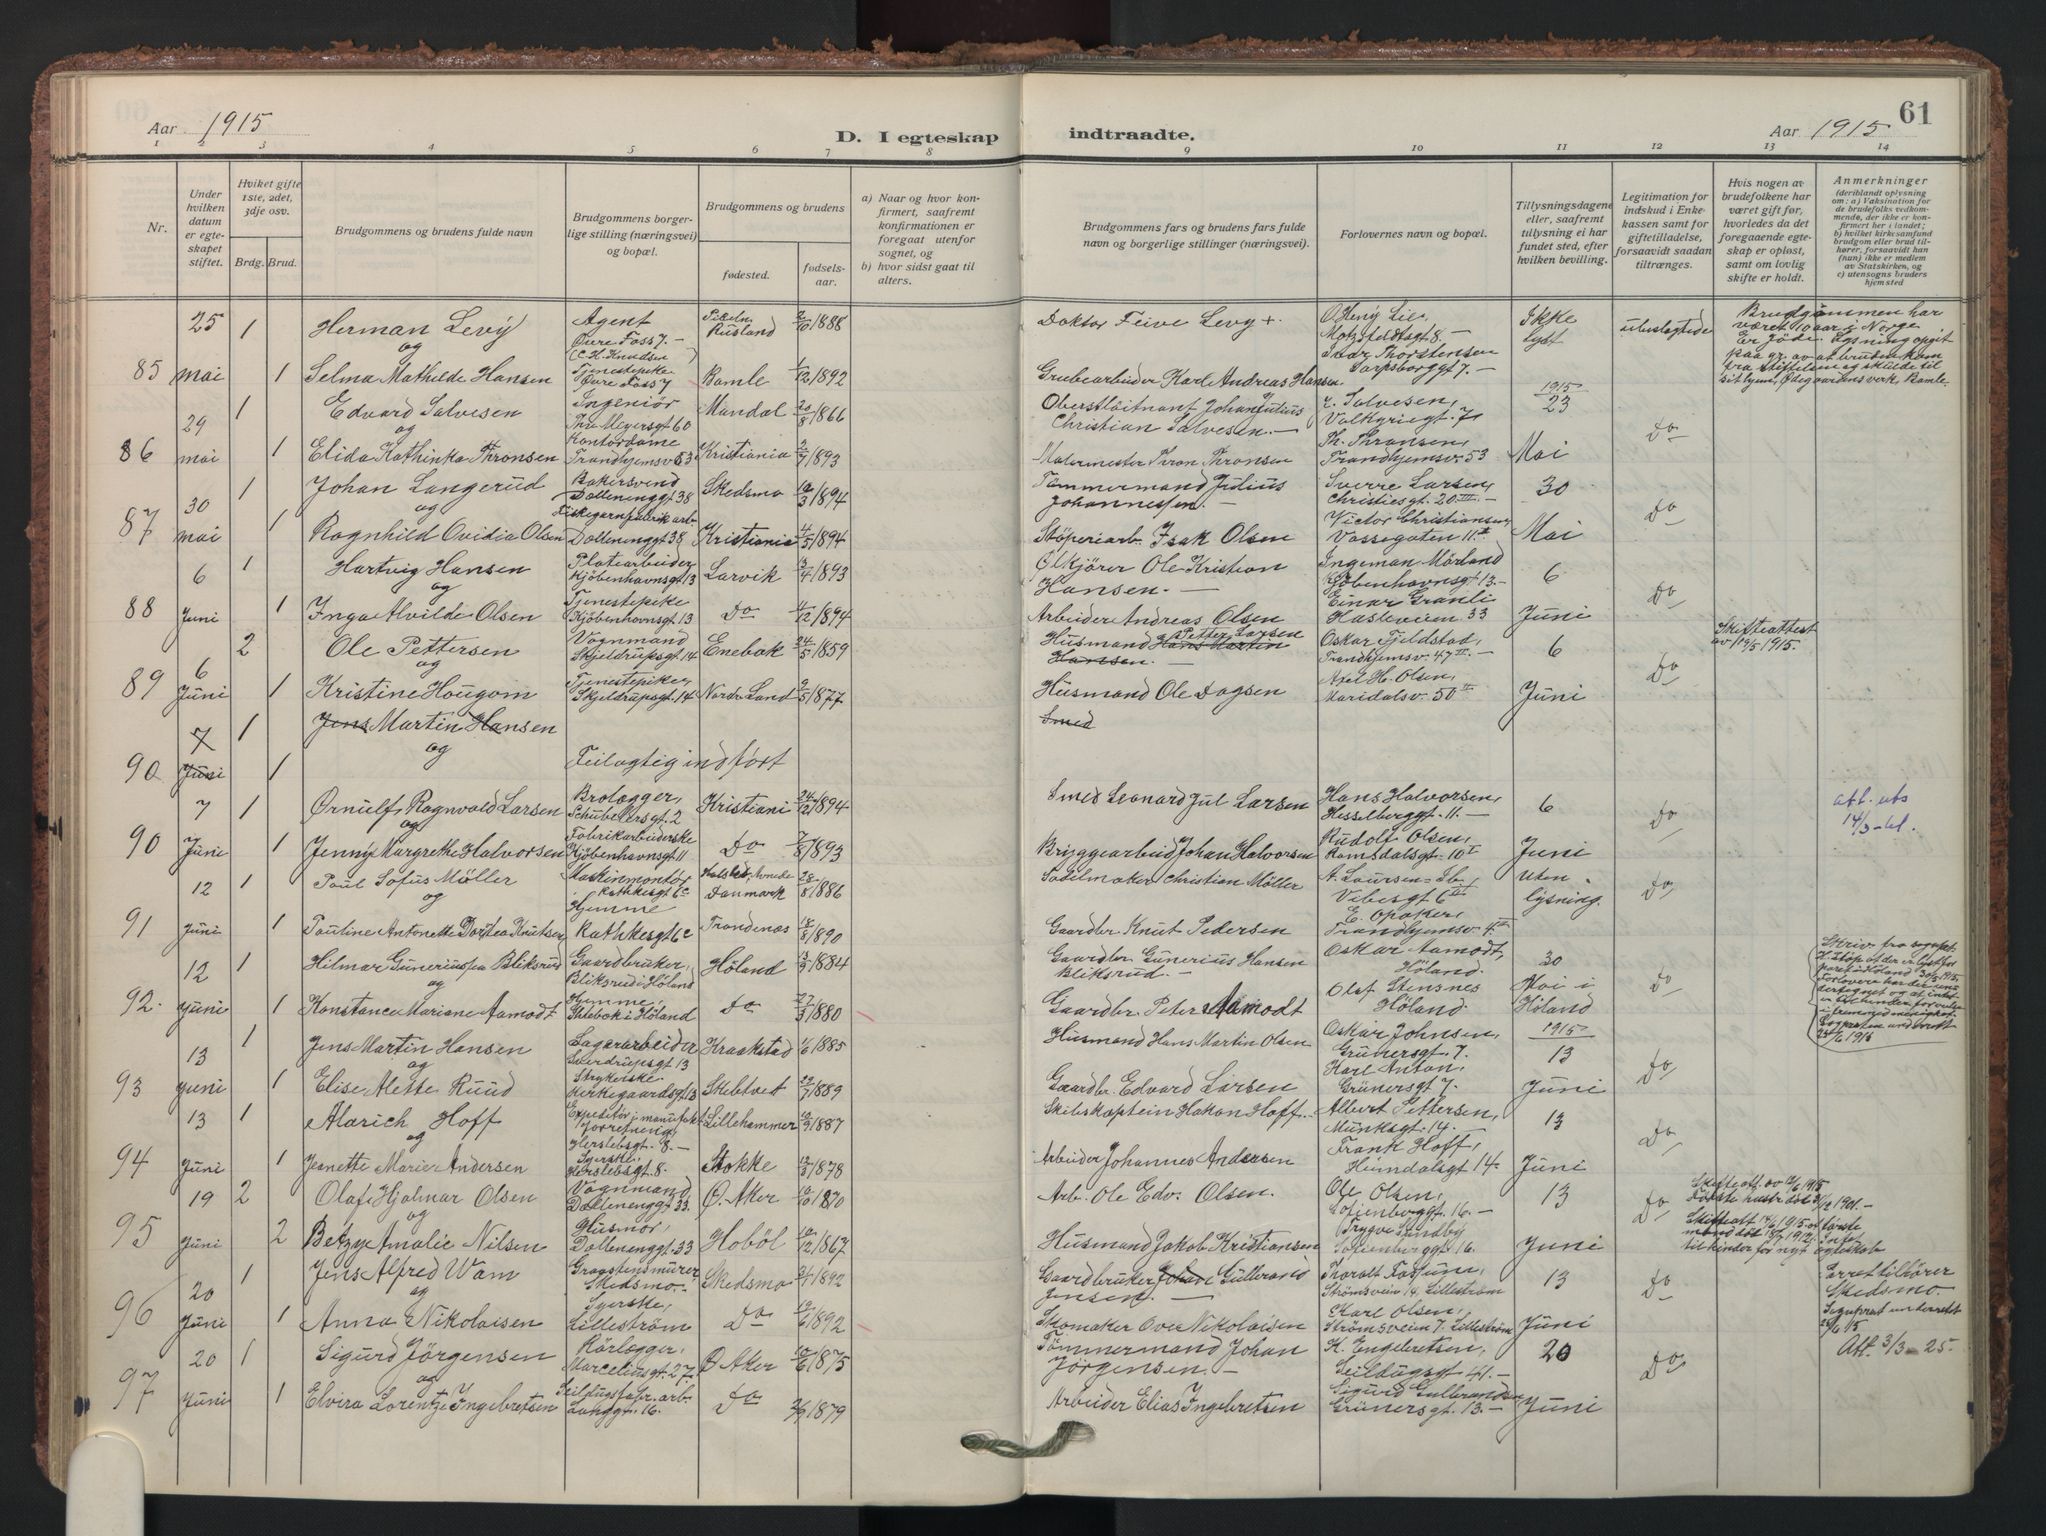 Aar 1915
D. I egteskap
indtraadte.
Aar 1915
61
1 2 3 4 5 6 7 8 9 10 11 12 13 14
Nr.
Under hvilken datum er egteskapet stiftet.
Hviket gifte 1ste, 2det, 3dje osv.
Brdg. Brud.
Brudgommens og brudens fulde navn
Brudgommens borgerlige stilling (næringsvei) og bopæl.
Brudgommens og brudens
fødested.
fødselsaar.
a) Naar og hvor konfirmert, saafremt konfirmationen er foregaat utenfor sognet, og
b) hvor sidst gaat til alters.
Brudgommens fars og brudens fars fulde navn og borgerlige stillinger (næringsvei).
Forlovernes navn og bopæl.
Tillysningsdagene eller, saafremt tillysning ei har fundet sted, efter hvilken bevilling.
Legitimation for indskud i Enkekassen samt for giftetilladelse, forsaavidt saadan tiltrænges.
Hvis nogen av brudefolkene har været gift før, hvorledes da det foregaaende egteskap er opløst, samt om lovlig skifte er holdt.
Anmerkninger
(deriblandt oplysning om: a) Vaksination for de brudefolks vedkommende, der ikke er konfirmert her i landet;
b) hvilket kirkesamfund brudgom eller brud tilhører, forsaavidt han (hun) ikke er medlem av Statskirken, og
c) utensogns bruders hjemsted
85 25 mai 1 Herman Levy Agent Øvre Foss 7. (C. H. Knudsen) Rusland 2/10 1888 Doktor Feive Levy + Motzfeldtsgt 8. Ikke lyst ubeslagtede
og
1 Selma Mathilde Hansen Tjenestepike Øvre Foss 7 Bamle 1/12 1892 Grubearbeider Karl Andreas Hansen Thorstensen Sarpsborggt 7.
Brudgommen har været 10 aar i Norge Er jøde. Lysning opgit paa gr. av at bruden kom fra Stiftelsen og skulde til sit hjem, Ødegaardens verk, Bamle.
86 29 mai 1 Edvard Salvesen Ingeniør Thv Meyersgt 60 Mandal 20/8 1866 Oberstløitnant Johan Julius Christian Salvesen. Salvesen, Valkyriegt. 7 1915 23 Mai Do
og
1 Elida Kathinka Thronsen Kontordame Trondhjemsv 53 Kristiania 2/7 1893 Malermester Thron Thronsen Th. Thronsen, Trondhjemsv. 53
87 30 mai 1 Johan Langerud Bakersvend Dælenenggt 38 Skedsmo 12/3 1894 Tømmermand Julius Johannessen. Sverre Larsen, Christiesgt. 20 III. 30 Mai Do
og
1 Ragnhild Ovidia Olsen Fiskegarnfabrikarb Dælenenggt 38 Kristiania 4/5 1894 Støperiarb. Isak Olsen Victor Christiansen, Vossegaten 11 II
88 6 Juni 1 Hartvig Hansen Platearbeider Kjøbenhavnsgt 13 Larvik 3/4 1893 Ølkjører Ole Kristian Hansen. Ingeman Mørland Kjøbenhavnsgt 13. 6 Juni Do
og
1 Inga Alvilde Olsen Tjenestepike Kjøbenhavnsgt. 13 Do 4/12 1894 Arbeider Andreas Olsen Einar Granli Hasleveien 33
89 6 Juni 2 Ole Pettersen Vognmand Skjeldrupsgt 14 Enebak 24/5 1859 Husmand Petter Larsen Hans Martin Hansen. Oskar Fjeldstad, Trondhjemsv. 47 II. 6 Juni Do Skifteattest av 10/5 1915.
og
1 Kristine Hougom Tjenestepike, Skjeldrupsgt 14 Nordre Land 2/5 1877 Husmand Ole Dagsen Axel H. Olsen, Maridalsv. 50 II
90 7 Juni 1 Jens Martin Hansen Smed
og
1 Feilagtig indført
90 7 Juni 1 Ørnulf Ragnvald Larsen Brolægger, Schubelersgt. 2 Kristiani 24/12 1894 Smed Leonard Jul Larsen Hans Halvorsen, Hesselberggt. 11. 6 Juni Do att. uts 14/3-41.
og
1 Jenny Margrethe Halvorsen Fabrikarbeiderske Kjøbenhavnsgt 11 Do 7/8 1893 Bryggearbeid Johan Halvorsen Rudolf Olsen, Romsdalsgt. 10 I
91 12 Juni 1 Poul Sofus Möller Maskinmontør, Rathkesgt 6c Danmark 28/8 1886 Sadelmaker Christian Möller Vibesgt 6 III uten lysning. Do
og
1 Pauline Antonette Dortea Knutsen Hjemme Rathkesgt 6c Trondenæs 18/8 1890 Gaardbr. Knut Pedersen E. Opaker, Trondhjemsv.
92. 12 juni 1 Hilmar Guneriussen Bliksrud Gaardbruker, Bliksrud i Høland Høland 13/9 1884 Gaardbr. Gunerius Hansen Bliksrud. Oskar Aamodt, Høland. 30 Mai i Høland Do
og
1 Konstance Mariane Aamodt Hjemme, i Høland Do 27/3 1880 Gaardbr. Peter Aamodt Olaf Stensnes Høland
93 13 juni 1 Jens Martin Hansen Lagerarbeider Sverdrupsgt 13 Kraakstad 1/6 1885 Husmand Hans Martin Olsen Oskar Johnsen, Grünersgt. 7. 1915 13 Juni Do
og
1 Elise Alette Ruud Strykerske Kirkegaardsgt 13 Skibtvet 22/7 1889 Gaardbr. Edvard Larsen Karl Anton, Grünersgt 7.
94 13 Juni 1 Alarich Hoff Expeditør i manufakt forretning, Herslebsgt. 8. Lillehammer 10/9 1887 Skibskaptein Hakon Hoff. Albert Pettersen, Munksgt. 14. 13 Juni Do
og
1 Jeanette Marie Andersen Syerske, Herslebsgt 8. Stokke 12/3 1878 Arbeider Johannes Andersen Frank Hoff, Heimdalsgt 14.
95 19 Juni 2 Olaf Hjalmar Olsen Vognmand Dælenenggt 33. Ø. Aker 10/10 1870 Arb. Ole Edv. Olsen. Ole Olsen, Sofienberggt. 16. 13 Juni Do Skifteatt. av 12/6 1915 Første hustru død 31/12 1901.
og
2 Betzy Amalie Nilsen Husmor, Dælenenggt. 33 Hobøl 10/12 1867 Husmand Jakob Kristiansen Trygve Sundby Sofienberggt 16. Skifteatt 14/6 1915 første mand død 18/7 1912.
96 20 Juni 1 Jens Alfred Wam Graastensmurer Skedsmo. Skedsmo 1892 Gaardbruker Johan Gulbrand Jensen. Thoralf Fossum, Strømsveien 14 Lillestrøm 13 Juni Do Parret tilhører Skedsmo. Sognprest underrettet 25/6 15
og
1 Anna Nikolaisen Syerske, Lillestrøm Do 19/6 1892 Skomaker Ove Nikolaisen Karl Olsen, Strømsveien 7. Lillestrøm
97 20 Juni 1 Sigurd Jørgensen Rørlægger, Marcelinsgt. 27 Ø Aker 10/6 1875 Tømmermand Johan Jørgensen. K. Engebretsen, Seildugsgt 41. 20 Juni Do Att. 3/3-25.
og
1 Elvira Lorentze Ingebretsen Seildugsfabr. arb. Langgt. 16. Do 1879 Arbeider Elias Ingebretsen Sigurd Gulbrandsen Grünersgt. 13.